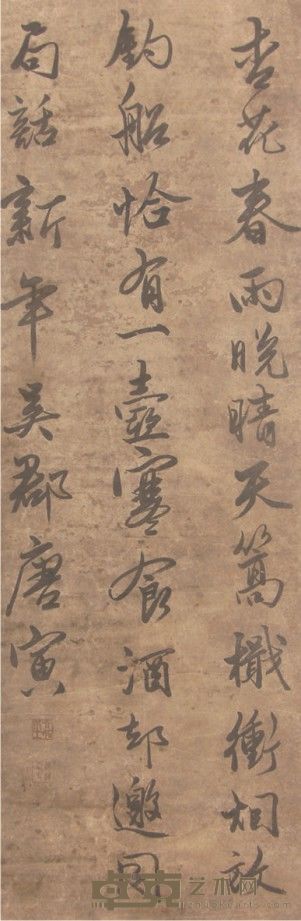 杏花春雨晚晴天篙檝衝烟放
釣船恰有一壺寒食酒却邀同
局話新年吳郡唐寅
艺术网